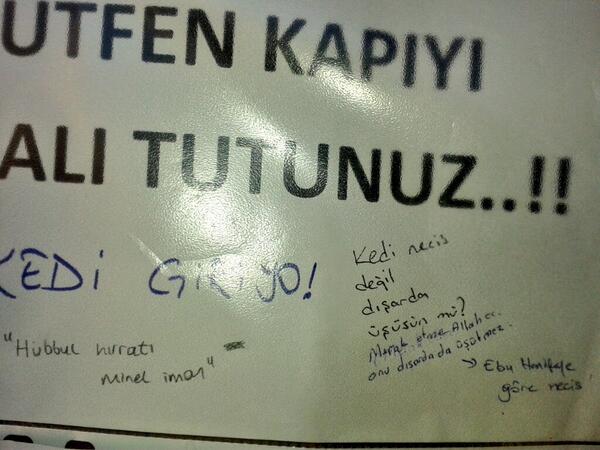 UTFEN KAPIYI
ALI TUTUNUZ..!!
KEDİ GİRİYO!
Kedi necis
değil
dışarda
üşüsün mü?
Merak etme Allah cc.
onu dışarda da üşütmez.
→ Ebu Hanifeye
göre necis
"Hubbul hirrati
minel iman"